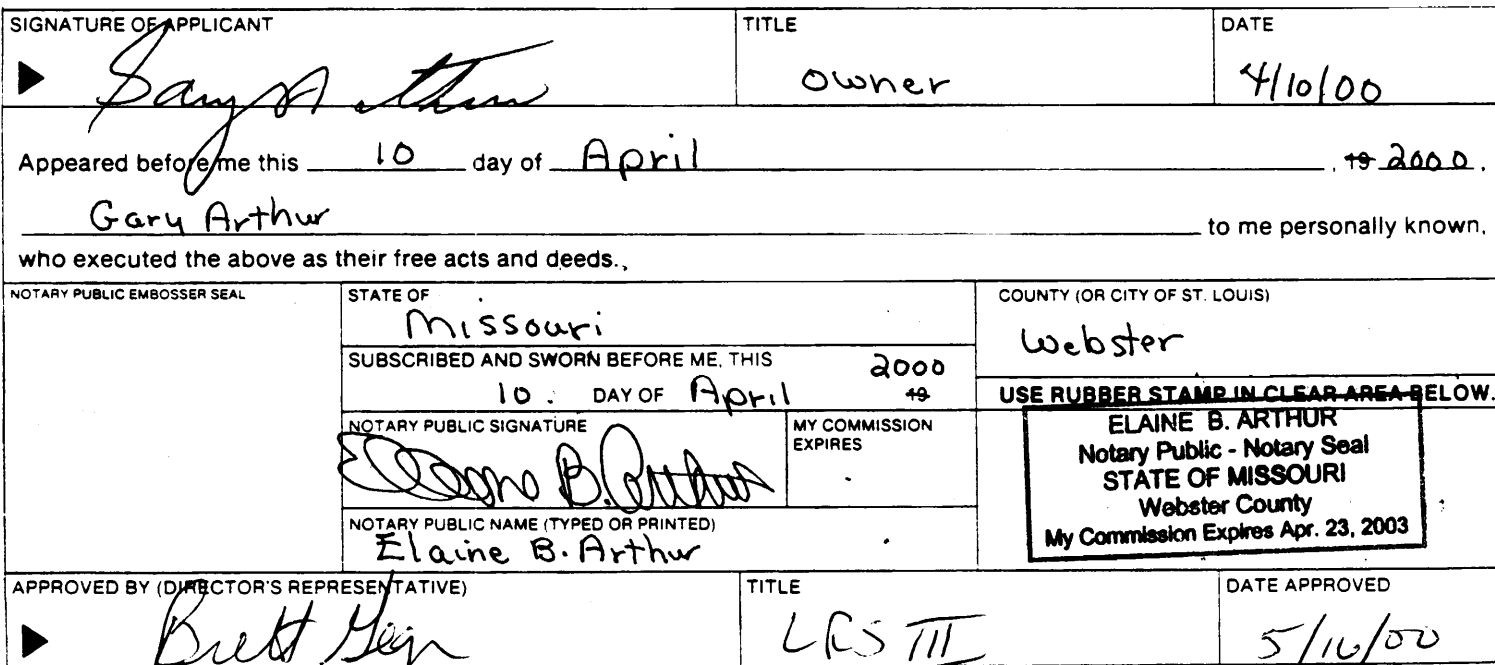 SIGNATURE OF APPLICANT TITLE DATE
Gary Arthur owner 4/10/00
Appeared before me this 10 day of April , 19 2000 ,
Gary Arthur to me personally known,
who executed the above as their free acts and deeds.,
NOTARY PUBLIC EMBOSSER SEAL STATE OF COUNTY (OR CITY OF ST. LOUIS)
Missouri Webster
SUBSCRIBED AND SWORN BEFORE ME, THIS 2000
10 . DAY OF April 19
USE RUBBER STAMP IN CLEAR AREA BELOW.
NOTARY PUBLIC SIGNATURE MY COMMISSION
EXPIRES
Elaine B. Arthur
NOTARY PUBLIC NAME (TYPED OR PRINTED)
Elaine B. Arthur
ELAINE B. ARTHUR
Notary Public - Notary Seal
STATE OF MISSOURI
Webster County
My Commission Expires Apr. 23, 2003
APPROVED BY (DIRECTOR'S REPRESENTATIVE) TITLE DATE APPROVED
Brett III 5/16/00